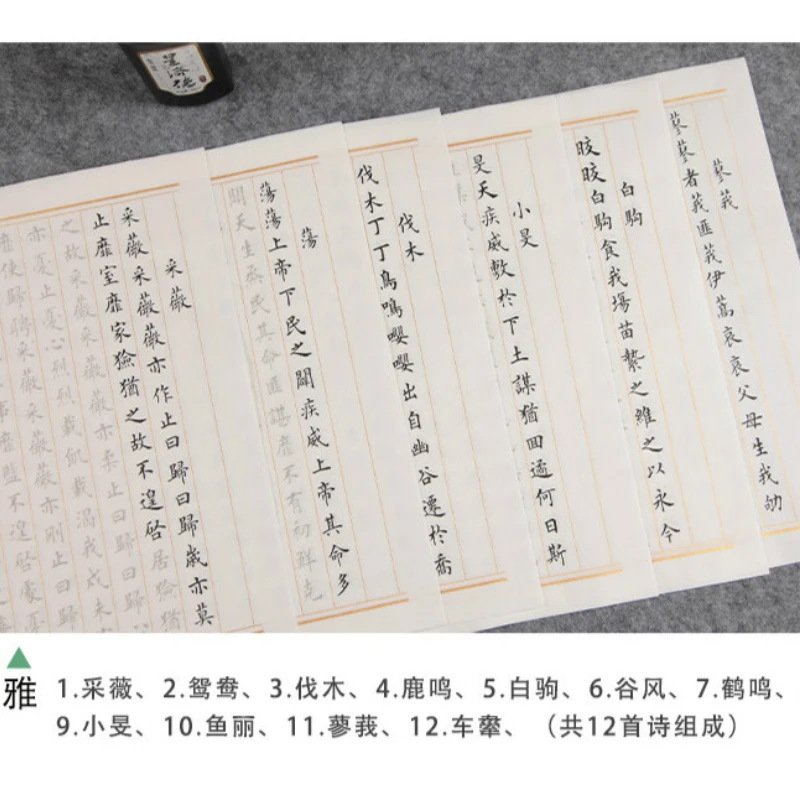 蓼莪
蓼蓼者莪匪莪伊蒿哀哀父母生我劬
白駒
皎皎白駒食我場苗縶之維之以永今
小旻
旻天疾威敷於下土謀猶回遹何日斯
伐木
伐木丁丁鳥鳴嚶嚶出自幽谷遷於喬
蕩
蕩蕩上帝下民之闢疾威上帝其命多
闢天生烝民其命匪諶靡不有初鮮克
采薇
采薇采薇薇亦作止曰歸曰歸歲亦莫
止靡室靡家獫猶之故不遑啓居獫猶
之故采薇采薇薇亦柔止曰歸曰
亦憂止憂心烈烈載飢載渴我戍未
靡使歸聘采薇采薇薇亦剛止曰歸
事靡盬不遑啓處憂
雅
1.采薇、2.鸳鸯、3.伐木、4.鹿鸣、5.白驹、6.谷风、7.鹤鸣、
9.小旻、10.鱼丽、11.蓼莪、12.车舝、（共12首诗组成）